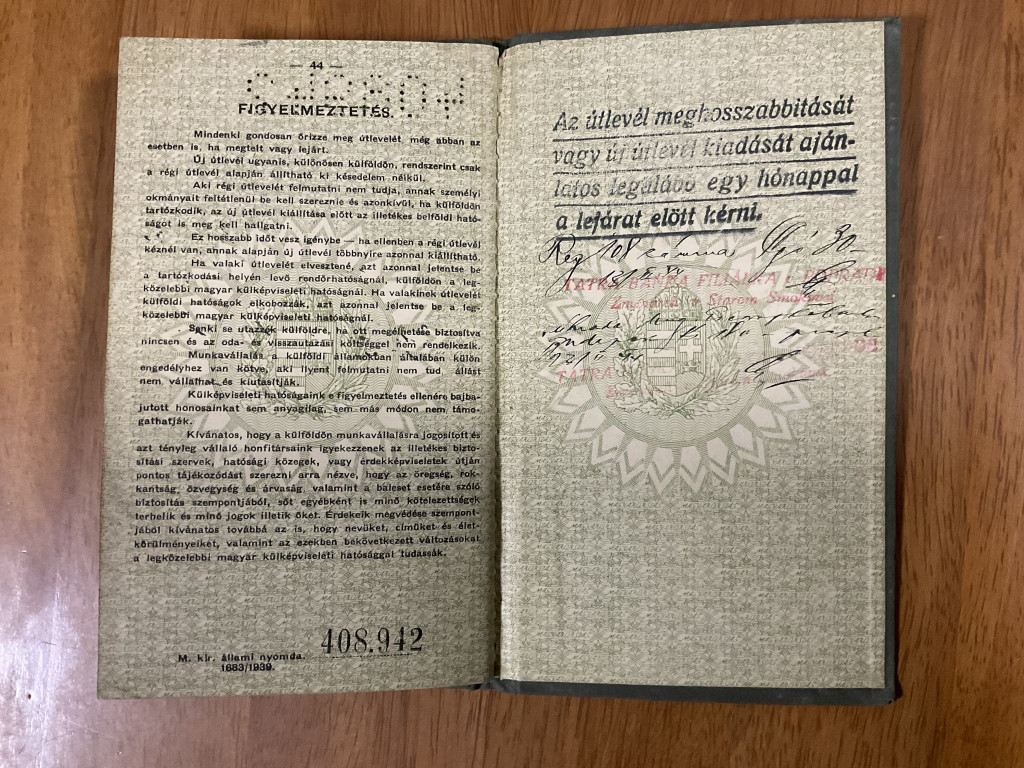 — 44 —
FIGYELMEZTETÉS.
Mindenki gondosan őrizze meg útlevelét még abban az
esetben is, ha megtelt vagy lejárt.
Új útlevél ugyanis, különösen külföldön, rendszerint csak
a régi útlevél alapján állítható ki késedelem nélkül.
Aki régi útlevelét felmutatni nem tudja, annak személyi
okmányait feltétlenül be kell szereznie és azonkívül, ha külföldön
tartózkodik, az új útlevél kiállítása előtt az illetékes belföldi ható-
ságot is meg kell hallgatni.
Ez hosszabb időt vesz igénybe — ha ellenben a régi útlevél
kéznél van, annak alapján új útlevél többnyire azonnal kiállítható.
Ha valaki útlevelét elvesztené, azt azonnal jelentse be
a tartózkodási helyén levő rendőrhatóságnál, külföldön a leg-
közelebbi magyar külképviseleti hatóságnál. Ha valakinek útlevelét
külföldi hatóságok elkobozzák, azt azonnal jelentse be a leg-
közelebbi magyar külképviseleti hatóságnál.
Senki se utazzék külföldre, ha ott megélhetése biztosítva
nincsen és az oda- és visszautazási költséggel nem rendelkezik.
Munkavállalás a külföldi államokban általában külön
engedélyhez van kötve, aki ilyent felmutatni nem tud állást
nem vállalhat és kiutasítják.
Külképviseleti hatóságaink e figyelmeztetés ellenére bajba-
jutott honosainkat sem anyagilag, sem más módon nem támo-
gathatják.
Kívánatos, hogy a külföldön munkavállalásra jogosított és
azt tényleg vállaló honfitársaink igyekezzenek az illetékes bizto-
sítási szervek, hatósági közegek, vagy érdekképviseletek útján
pontos tájékozódást szerezni arra nézve, hogy az öregség, rok-
kantság, özvegység és árvaság, valamint a baleset esetére szóló
biztosítás szempontjából, sőt egyébként is minő kötelezettségek
terhelik és minő jogok illetik őket. Érdekeik megvédése szempont-
jából kívánatos továbbá az is, hogy nevüket, címüket és élet-
körülményeiket, valamint az ezekben bekövetkezett változásokat
a legközelebbi magyar külképviseleti hatósággal tudassák.
408.942
M. kir. állami nyomda.
1683/1939.
Az útlevél meghosszabbitását
vagy új útlevél kiadását aján-
latos legalább egy hónappal
a lejárat előtt kérni.
Reg 108 számu 30
TATRA BANKA FILIÁLKA POPRAD
Starom Smokovci
TATRA